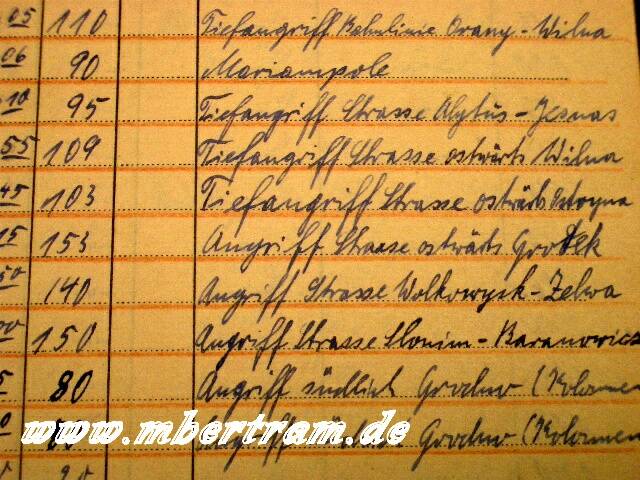 05 110 Tiefangriff Bahnlinie Orany - Wilna
06 90 Mariampole
10 95 Tiefangriff Strasse Alytus - Jesnas
55 109 Tiefangriff Strasse ostwärts Wilna
45 103 Tiefangriff Strasse ostwärts
15 153 Angriff Strasse ostwärts Grodek
50 140 Angriff Strasse Wolkowysk - Zelwa
150 Angriff Strasse Slonim - Baranowicz
5 80 Angriff südlich Grodno (Kolonnen
0 Angriff Grodno (Kolonnen
www.mbertram.de